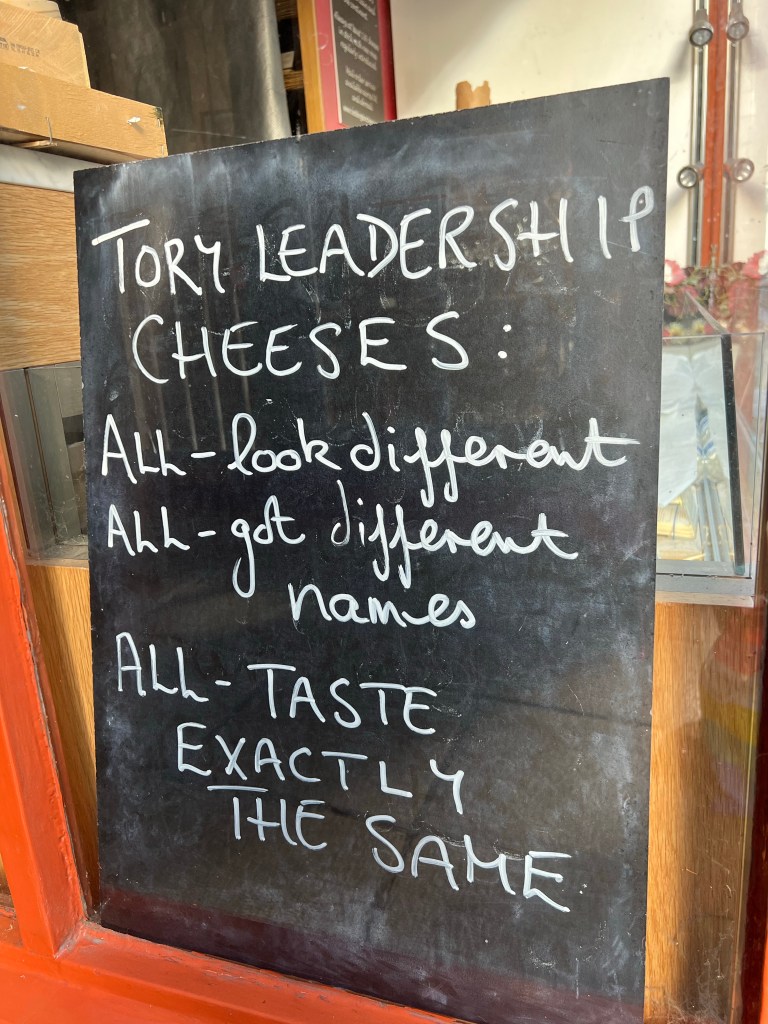 TORY LEADERSHIP
CHEESES:
ALL-look different
ALL-got different
names
ALL-TASTE
EXACTLY
THE SAME